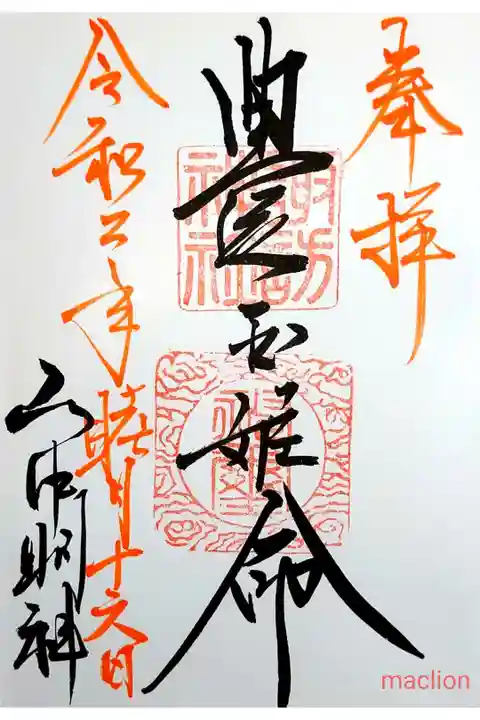 奉拝
豊玉姫命
令和二年睦月十六日
山中明神
諏訪神社
maclion